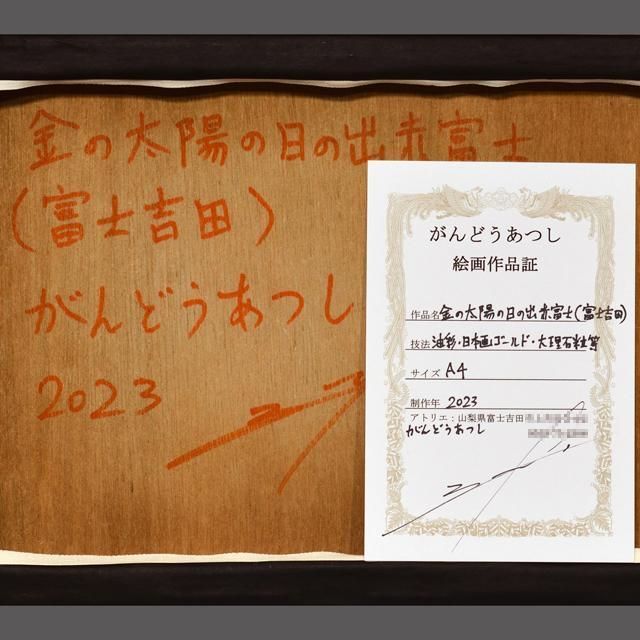 金の太陽の日の出赤富士
(富士吉田)
がんどうあつし
2023
がんどうあつし
絵画作品証
作品名 金の太陽の日の出赤富士(富士吉田)
技法 油彩・日本画ゴールド・大理石粒等
サイズ A4
制作年 2023
アトリエ：山梨県富士吉田
がんどうあつし